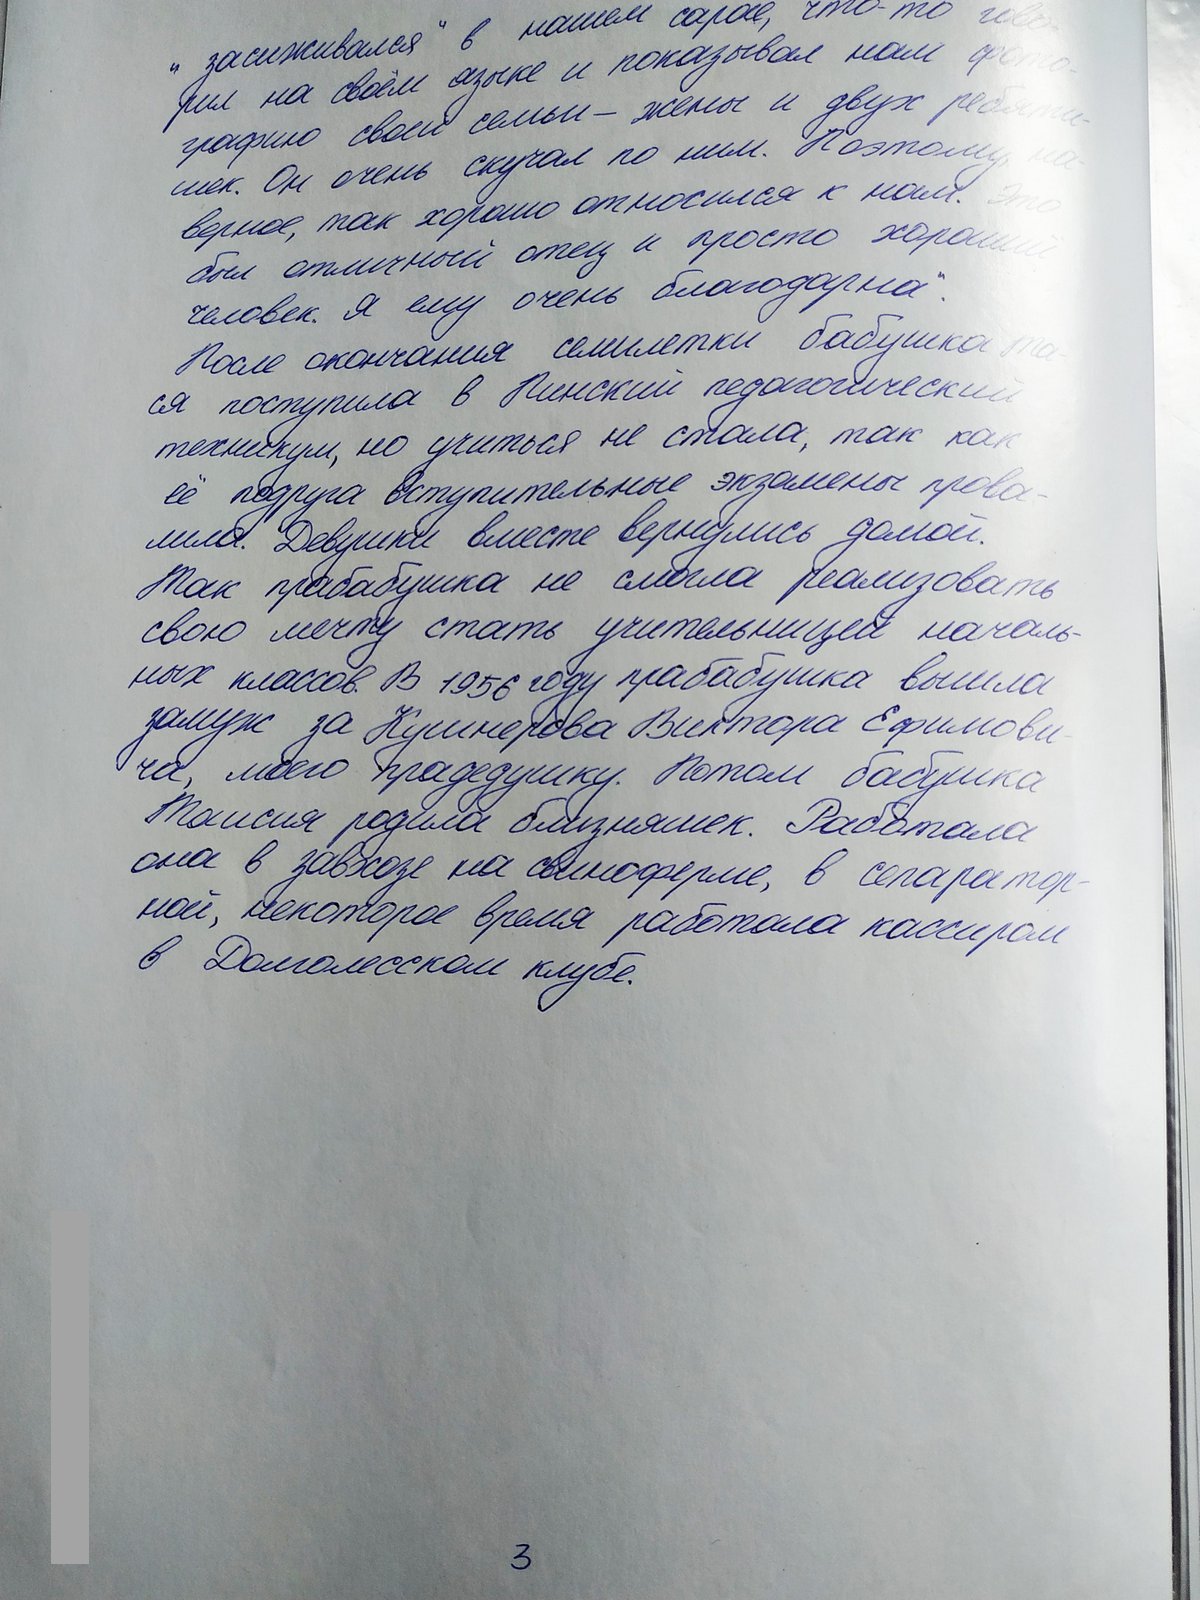 „засиживался" в нашем сарае, что-то гово-
рил на своём языке и показывал нам фото-
графию своей семьи – жены и двух ребяти-
шек. Он очень скучал по ним. Поэтому, на-
верное, так хорошо относился к нам. Это
был отличный отец и просто хороший
человек. Я ему очень благодарна".
После окончания семилетки бабушка Та-
ся поступила в Пинский педагогический
техникум, но учиться не стала, так как
её подруга вступительные экзамены прова-
лила. Девушки вместе вернулись домой.
Так прабабушка не смогла реализовать
свою мечту стать учительницей началь-
ных классов. В 1956 году прабабушка вышла
замуж за Кушнерова Виктора Ефимови-
ча, моего прадедушку. Потом бабушка
Таисия родила близняшек. Работала
она в завхозе на свиноферме, в сепаратор-
ной, некоторое время работала кассиром
в Долголесском клубе.
3